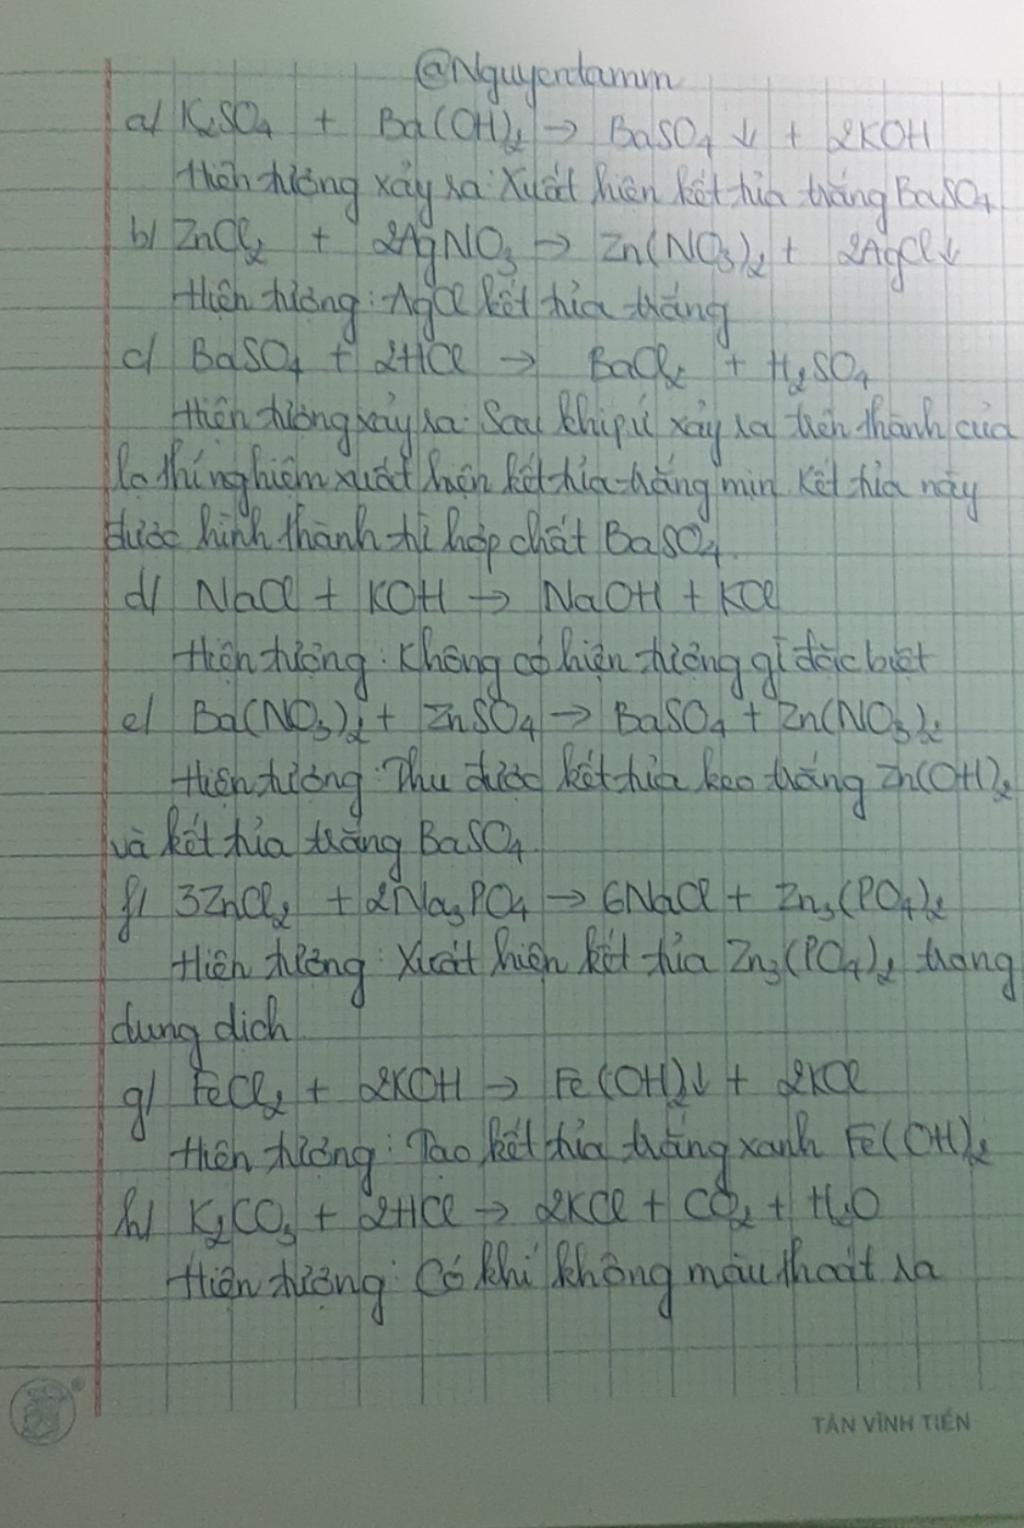 @Nguyentamm
a/ K₂SO₄ + Ba(OH)₂ → BaSO₄ ↓ + 2KOH
Hiện tượng xảy ra: Xuất hiện kết tủa trắng BaSO₄
b/ ZnCl₂ + 2AgNO₃ → Zn(NO₃)₂ + 2AgCl↓
Hiện tượng: AgCl kết tủa trắng
c/ BaSO₄ + 2HCl → BaCl₂ + H₂SO₄
Hiện tượng xảy ra: Sau khi pứ xảy ra trên thành của
lọ thí nghiệm xuất hiện kết tủa trắng mịn. Kết tủa này
được hình thành từ hợp chất BaSO₄.
d/ NaCl + KOH → NaOH + KCl
Hiện tượng: Không có hiện tượng gì đặc biệt
e/ Ba(NO₃)₂ + ZnSO₄ → BaSO₄ + Zn(NO₃)₂
Hiện tượng: Thu được kết tủa keo trắng Zn(OH)₂
và kết tủa trắng BaSO₄
f/ 3ZnCl₂ + 2Na₃PO₄ → 6NaCl + Zn₃(PO₄)₂
Hiện tượng: Xuất hiện kết tủa Zn₃(PO₄)₂ trong
dung dịch
g/ FeCl₂ + 2KOH → Fe(OH)₂↓ + 2KCl
Hiện tượng: Tạo kết tủa trắng xanh Fe(OH)₂
h/ K₂CO₃ + 2HCl → 2KCl + CO₂ + H₂O
Hiện tượng: Có khí không màu thoát ra
TÂN VĨNH TIẾN